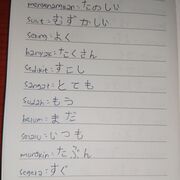 menyenangkan = たのしい
sulit = むずかしい
sering = よく
banyak = たくさん
sedikit = すこし
sangat = とても
sudah = もう
belum = まだ
selalu = いつも
mungkin = たぶん
segera = すぐ